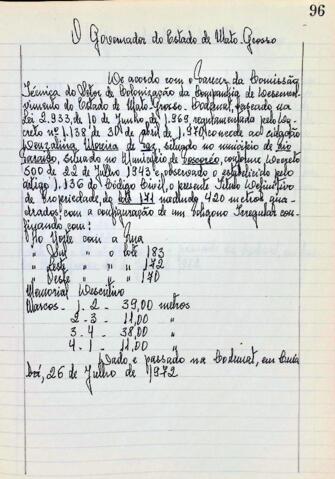 96
O Governador do Estado de Mato-Grosso
De acordo com o Parecer da Comissão
Técnica do Setor de Colonização da Companhia de Desenvol-
vimento do Estado de Mato-Grosso - Codemat, baseado na
Lei 2.933, de 10 de Junho, de 1.969, regulamentada pelo De-
creto nº 1.138 de 30 de abril de 1.970, concede ao cidadão
Moreira de situado no município de Rio
situado no Município de conforme Decreto
500 de 22 de Julho 1943 e observado o estabelecido pelo
artigo 1.136 do Código Civil, o presente Título Definitivo
de Propriedade, do lote 171 medindo 420 metros qua-
drados, com a configuração de um polígono Irregular con-
finando com:
Ao Norte com a Rua
" Sul " o lote 183
" Leste " " 172
" Oeste " " 170
Memorial Descritivo
Marcos - 1 - 2 - 39,00 metros
2 - 3 - 11,00 "
3 - 4 - 38,00 "
4 - 1 - 11,00 "
Dado e passado na Codemat, em Cuia
bá, 26 de Julho de 1972